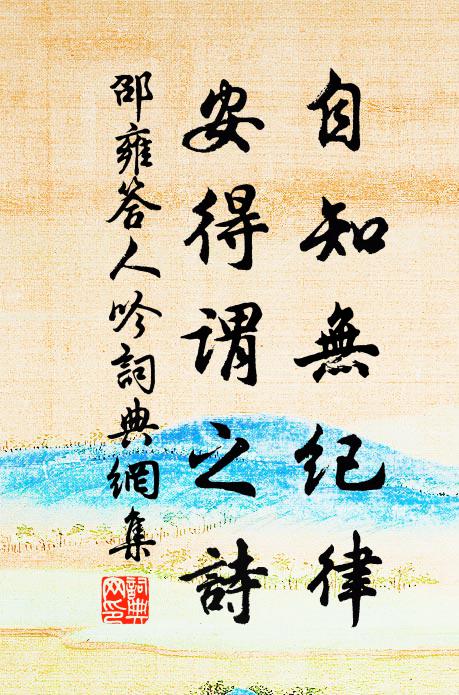 自知無紀律
安得謂之詩
邵雍答人吟詞典網集